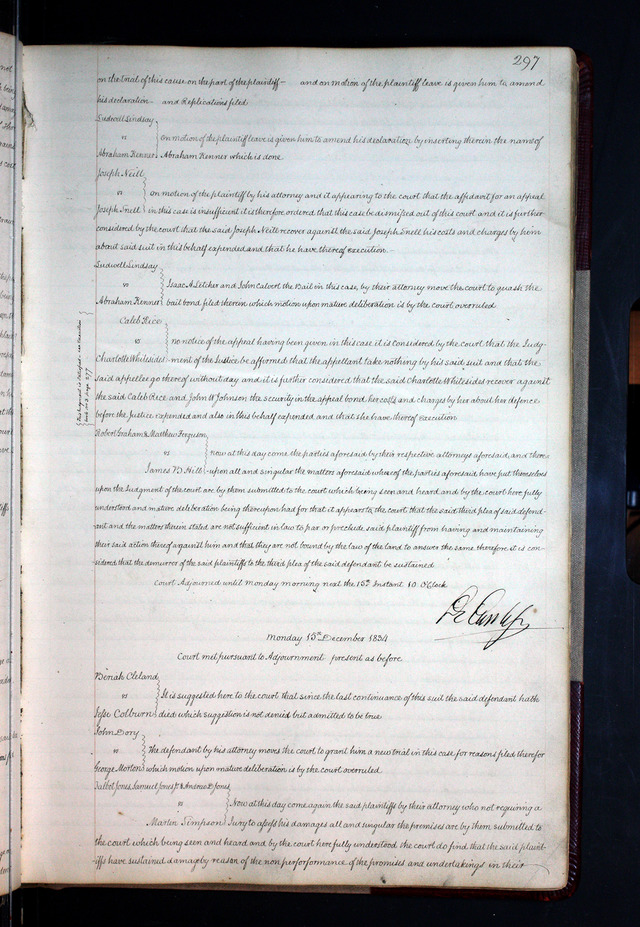 297
on the trial of this cause on the part of the plaintiff — and on motion of the plaintiff leave is given him to amend
his declaration and Replications filed
Ludwell Lindsay
vs on motion of the plaintiff leave is given him to amend his declaration by inserting therein the name of
Abraham Renner Abraham Renner which is done
Joseph Neill
vs on motion of the plaintiff by his attorney and it appearing to the court that the affidavit for an appeal
Joseph Snell in this case is insufficient it is therefore ordered that this case be dismissed out of this court and it is further
considered by the court that the said Joseph Neill recover against the said Joseph Snell his costs and charges by him
about said suit in this behalf expended and that he have thereof execution —
Ludwell Lindsay
vs Isaac A Letcher and John Calvert the Bail in this case, by their attorney move the court to quash the
Abraham Renner bail bond filed therein which motion upon mature deliberation is by the court overruled
Caleb Rice
vs no notice of the appeal having been given in this case it is considered by the court that the Judg-
Charlotte Whitesides -ment of the Justice be affermed that the appellant take nothing by his said suit and that the
said appellee go thereof without day and it is further considered that the said Charlotte Whitesides recover against
the said Caleb Rice and John W Johnson the security in the appeal bond her costs and charges by her about her defence
before the Justice expended and also in this behalf expended and that she have thereof execution
Robert Graham & Matthew Ferguson
vs now at this day come the parties aforesaid by their respective attorneys aforesaid, and there-
James B Hill -upon all and singular the matters aforesaid whereof the parties aforesaid have put themselves
upon the Judgment of the court are by them submitted to the court which being seen and heard and by the court here fully
understood and mature deliberation being thereupon had for that it appears to the court that the said third plea of said defend-
ant and the matters therein stated are not sufficient in law to bar or preclude said plaintiff from having and maintaining
their said action thereof against him and that they are not bound by the law of the land to answer the same therefore it is con-
sidered that the demurrer of the said plaintiffs to the third plea of the said defendant be sustained
Court Adjourned until monday morning next the 15th Instant 10 O'Clock
monday 15th December 1834
Court met pursuant to Adjournment present as before
Benah Cleland
vs It is suggested here to the court that since the last continuance of this suit the said defendant hath
Jesse Colburn died which suggestion is not denied but admitted to be true
John Dory
vs the defendant by his attorney moves the court to grant him a new trial in this case for reasons filed therefor
George Morton which motion upon mature deliberation is by the court overruled
Talbot Jones, Samuel Jones Jr & Andrew D Jones
vs Now at this day come again the said plaintiffs by their attorney who not requiring a
Martin Simpson Jury to assess his damages all and singular the premises are by them submitted to
the court which being seen and heard and by the court here fully understood the court do find that the said plaint-
iffs have sustained damage by reason of the non performance of the promises and undertakings in their